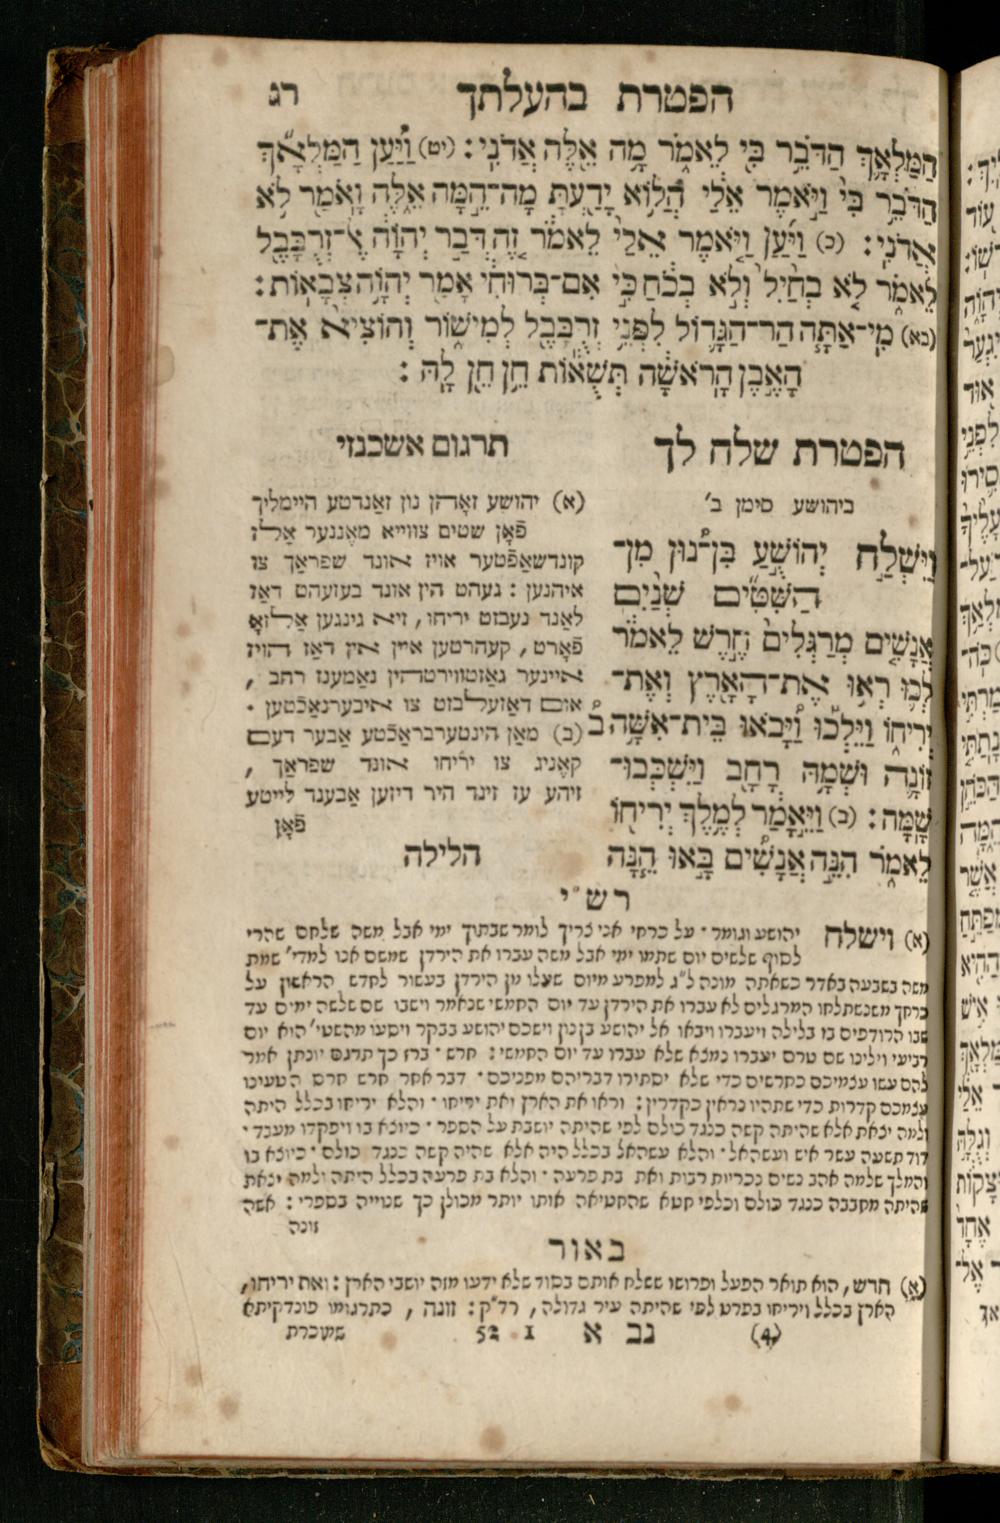 הפטרת בהעלתך רג
הַמַּלְאָךְ הַדֹּבֵר בִּי לֵאמֹר מָה אֵלֶּה אֲדֹנִי׃ (יט) וַיַּעַן הַמַּלְאָךְ
הַדֹּבֵר בִּי וַיֹּאמֶר אֵלַי הֲלוֹא יָדַעְתָּ מָה־הֵמָּה אֵלֶּה וָאֹמַר לֹא
אֲדֹנִי׃ (כ) וַיַּעַן וַיֹּאמֶר אֵלַי לֵאמֹר זֶה דְּבַר יְהוָֹה אֶל־זְרֻבָּבֶל
לֵאמֹר לֹא בְחַיִל וְלֹא בְכֹחַ כִּי אִם־בְּרוּחִי אָמַר יְהוָֹה צְבָאוֹת׃
(כא) מִי־אַתָּה הַר־הַגָּדוֹל לִפְנֵי זְרֻבָּבֶל לְמִישׁוֹר וְהוֹצִיא אֶת־
הָאֶבֶן הָרֹאשָׁה תְּשֻׁאוֹת חֵן חֵן לָהּ׃
הפטרת שלח לך
ביהושע סימן ב׳
וַיִּשְׁלַח יְהוֹשֻׁעַ בִּן־נוּן מִן־
הַשִּׁטִּים שְׁנַיִם
אֲנָשִׁים מְרַגְּלִים חֶרֶשׁ לֵאמֹר
לְכוּ רְאוּ אֶת־הָאָרֶץ וְאֶת־
יְרִיחוֹ וַיֵּלְכוּ וַיָּבֹאוּ בֵּית־אִשָּׁה
זוֹנָה וּשְׁמָהּ רָחָב וַיִּשְׁכְּבוּ־
שָׁמָּה׃ (ב) וַיֵּאָמַר לְמֶלֶךְ יְרִיחוֹ
לֵאמֹר הִנֵּה אֲנָשִׁים בָּאוּ הֵנָּה
הלילה
תרגום אשכנזי
(א) יהושע זאָהן נון זאַנדטע היימליך
פֿאָן שטים צווייא מאֶננער אַלז
קונדשאַפֿטער אויז אונד שפראַך צו
איהנען : געהט הין אונד בעזעהט דאַז
לאַנד נעבזט יריחו, זיא גינגען אַלזאָ
פֿאָרט, קעהרטען אין דאַז הויז
איינער גאַזטווירטהין נאַמענז רחב ,
אום דאַזעלבזט צו איבערנאַכֿטען .
(ב) מאַן הינטערבראַכֿטע אַבער דעם
קאֶניג צו יריחו אונד שפראַך ,
זיהע עז זינד היר דיזען אַבענד לייטע
פֿאָן
רש״י
(א) וישלח יהושע וגומר · על כרחי אני צריך לומר שבתוך ימי אבל משה שלחם שהרי
לסוף שלשים יום שתמו ימי אבל משה עברו את הירדן שמשם אנו למדי׳ שמת
משה בשבעה באדר כשאתה מונה ל״ג למפרע מיום שעלו מן הירדן בעשור לחדש הראשון על
כרחך משנשתלחו המרגלים לא עברו את הירדן עד יום החמשי שנאמר וישבו שם שלשה ימים עד
שבו הרודפים בו בלילה ויעברו ויבאו אל יהושע בן נון וישכם יהושע בבקר ויסעו מהשטי׳ הוא יום
רביעי וילינו שם טרם יעברו נמצא שלא עברו עד יום החמשי: חרש · ברז כך תרגם יונתן אמר
להם עשו עצמיכם כחרשים כדי שלא יסתירו דבריהם מפניכם · דבר אחר חרש חרס הטעינו
עצמכם קדרות כדי שתהיו נראין כקדרין: וראו את הארץ ואת יריחו · והלא יריחו בכלל היתה
ולמה יצאת אלא שהיתה קשה כנגד כולם לפי שהיתה יושבת על הספר · כיוצא בו ויפקדו מעבדי
דוד תשעה עשר איש ועשהאל · והלא עשהאל בכלל היה אלא שהיה קשה כנגד כולם · כיוצא בו
והמלך שלמה אהב נשים נכריות רבות ואת בת פרעה · והלא בת פרעה בכלל היתה ולמה יצאת
שהיתה מחבבה כנגד כולם וכלפי חטא שהחטיאה אותו יותר מכולן כך שנוייה בספרי: אשה
זונה
באור
(א) חרש, הוא תואר הפעל ופרושו ששלח אותם בסוד שלא ידעו מזה יושבי הארץ: ואת יריחו,
הארץ בכלל ויריחו בפרט לפי שהיתה עיר גדולה, רד״ק: זונה, כתרגומו פונדקיתא
(4) נב א 1 52 שמוכרת